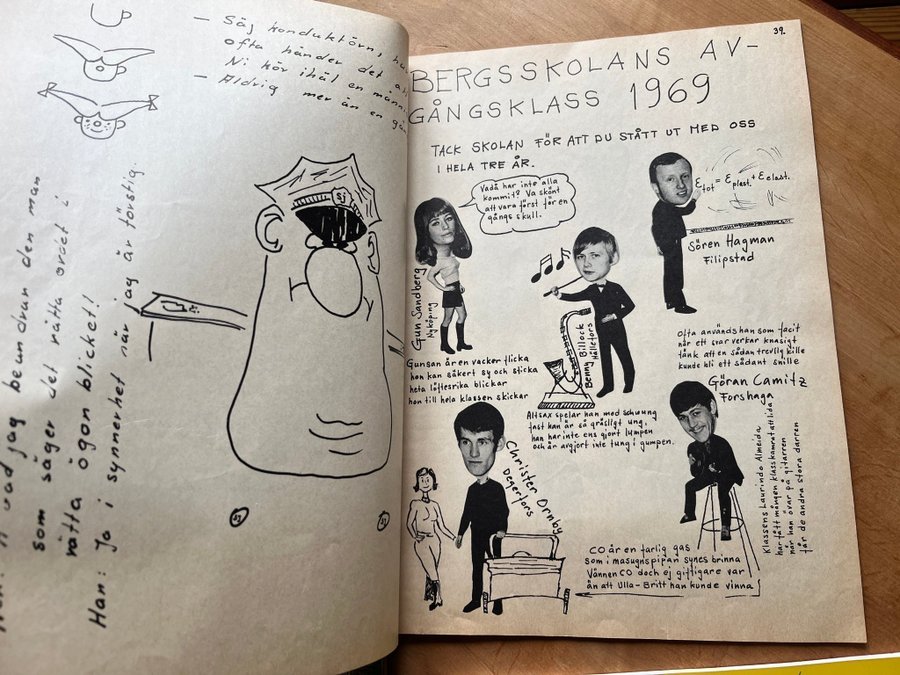 — Säg konduktörn, ha
ofta händer det att
Ni kör ihäl en männi
— Aldrig mer än en gån
vad jag beundrar den man
som säger det rätta ordet i
rätta ögon blicket!
Han: Ja i synnerhet när jag är törstig.
SJ
SJ
SJ
39.
BERGSSKOLANS AV-
GÅNGSKLASS 1969
TACK SKOLAN FÖR ATT DU STÅTT UT MED OSS
I HELA TRE ÅR.
Vadå har inte alla
kommit? Va skönt
att vara först för en
gångs skull.
Gun Sandberg
Nyköping
Gunsan är en vacker flicka
hon kan säkert sy och sticka
heta löftesrika blickar
hon till hela klassen skickar
Benny Billock
Hällefors
Altsax spelar han med schwung
fast kan är så gräsligt ung,
han har inte ens gjort lumpen
och är avgjort inte tung i gumpen.
Ɛtot = Ɛplast. + Ɛelast.
Sören Hagman
Filipstad
Ofta används han som facit
når ett svar verkar knasigt
tänk att en sådan trevlig kille
kunde bli ett sådant snille
Christer Ornby
Degerfors
CO är en farlig gas
som i masugnspipan synes brinna
Vännen CO doch ej giftigare var
än att Ulla-Britt han kunde vinna
Göran Camitz
Forshaga
Klassens Laurindo Almeida
har fått mången klasskamrat att lida
når han övar på gitarren
får de andra stora darren